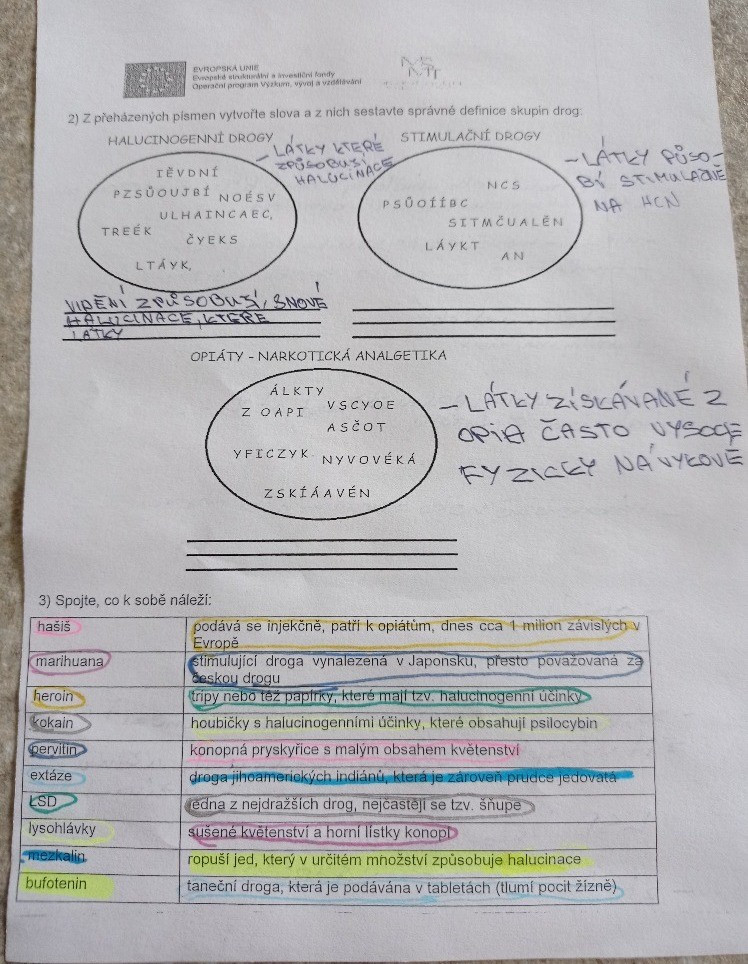 EVROPSKÁ UNIE
Evropské strukturální a investiční fondy
Operační program Výzkum, vývoj a vzdělávání
2) Z přeházených písmen vytvořte slova a z nich sestavte správné definice skupin drog:
HALUCINOGENNÍ DROGY
– LÁTKY KTERÉ
ZPŮSOBUSÍ
HALUCINACE
IĚVDNÍ
PZSŮOUJBÍ NOÉSV
ULHAINCAEC,
TREÉK
ČYEKS
LTÁYK,
VIDĚNÍ ZPŮSOBUSÍ, SNOVÉ
HALUCINACE, KTERÉ
LÁTKY
STIMULAČNÍ DROGY
– LÁTKY PŮSO–
BÍ STIMULAČNĚ
NA HCN
NCS
PSŮOÍÍBC
SITMČUALĚN
LÁYKT
AN
OPIÁTY - NARKOTICKÁ ANALGETIKA
ÁLKTY
Z OAPI VSCYOE
ASČOT
YFICZYK NYVOVÉKÁ
ZSKÍÁAVÉN
– LÁTKY ZÍSKÁVANÉ Z
OPIA ČASTO VYSOCE
FYZICKY NÁVYKOVÉ
3) Spojte, co k sobě náleží:
hašiš
podává se injekčně, patří k opiátům, dnes cca 1 milion závislých v
Evropě
marihuana
stimulující droga vynalezená v Japonsku, přesto považovaná za
českou drogu
heroin
tripy nebo též papírky, které mají tzv. halucinogenní účinky
kokain
houbičky s halucinogenními účinky, které obsahují psilocybin
pervitin
konopná pryskyřice s malým obsahem květenství
extáze
droga jihoamerických indiánů, která je zároveň prudce jedovatá
LSD
jedna z nejdražších drog, nejčastěji se tzv. šňupe
lysohlávky
sušené květenství a horní lístky konopí
mezkalin
ropuší jed, který v určitém množství způsobuje halucinace
bufotenin
taneční droga, která je podávána v tabletách (tlumí pocit žízně)